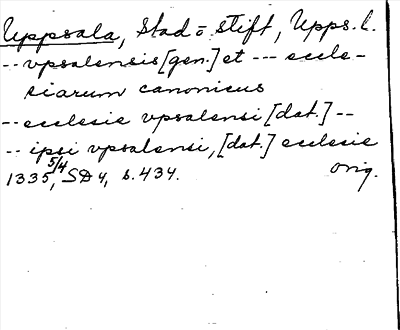 Uppsala, stad o. stift, Upps. l.
-- vpsalensis [gen.] et --- eccle-
siarum canonicus
-- ecclesie vpsalensi [dat.] --
-- ipsi vpsalensi, [dat.] ecclesie
1335 5/4, SD 4, s. 434. orig.